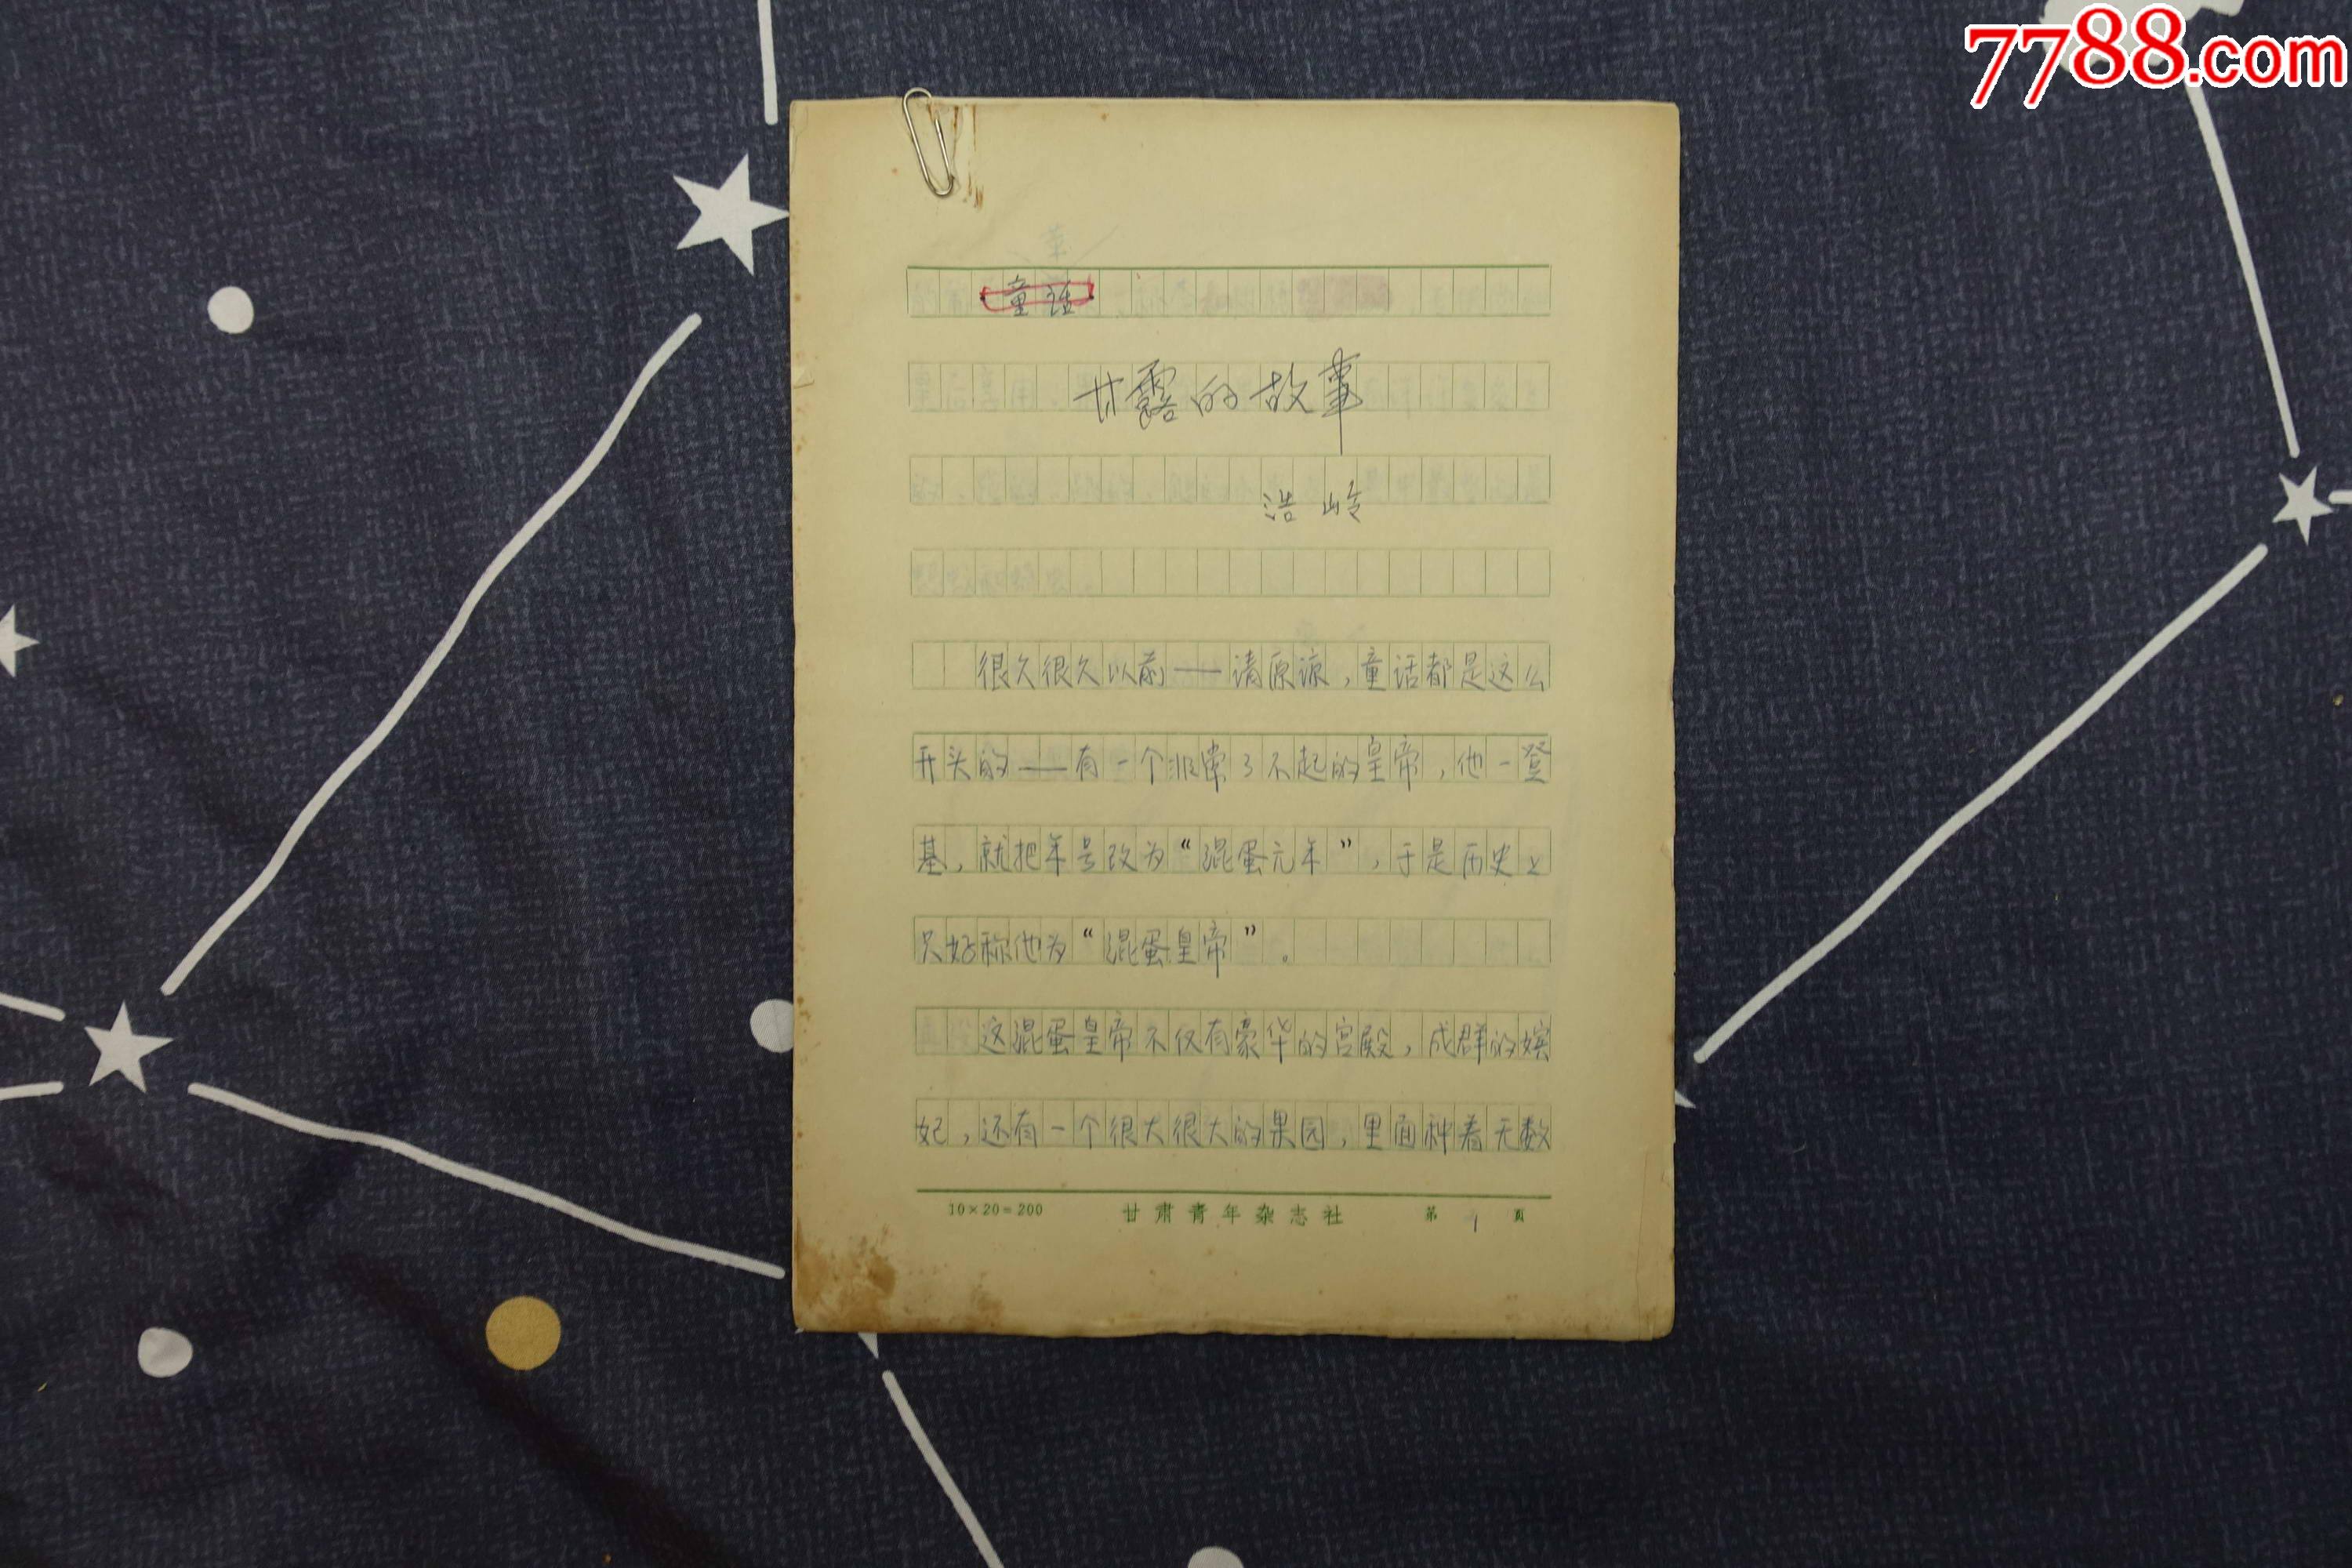 7788.com
童话
甘露的故事
浩岭
很久很久以前——请原谅，童话都是这么
开头的——有一个非常了不起的皇帝，他一登
基，就把年号改为“混蛋元年”，于是历史上
只好称他为“混蛋皇帝”。
这混蛋皇帝不仅有豪华的宫殿，成群的嫔
妃，还有一个很大很大的果园，里面种着无数
10×20=200 甘肃青年杂志社 第 1 页